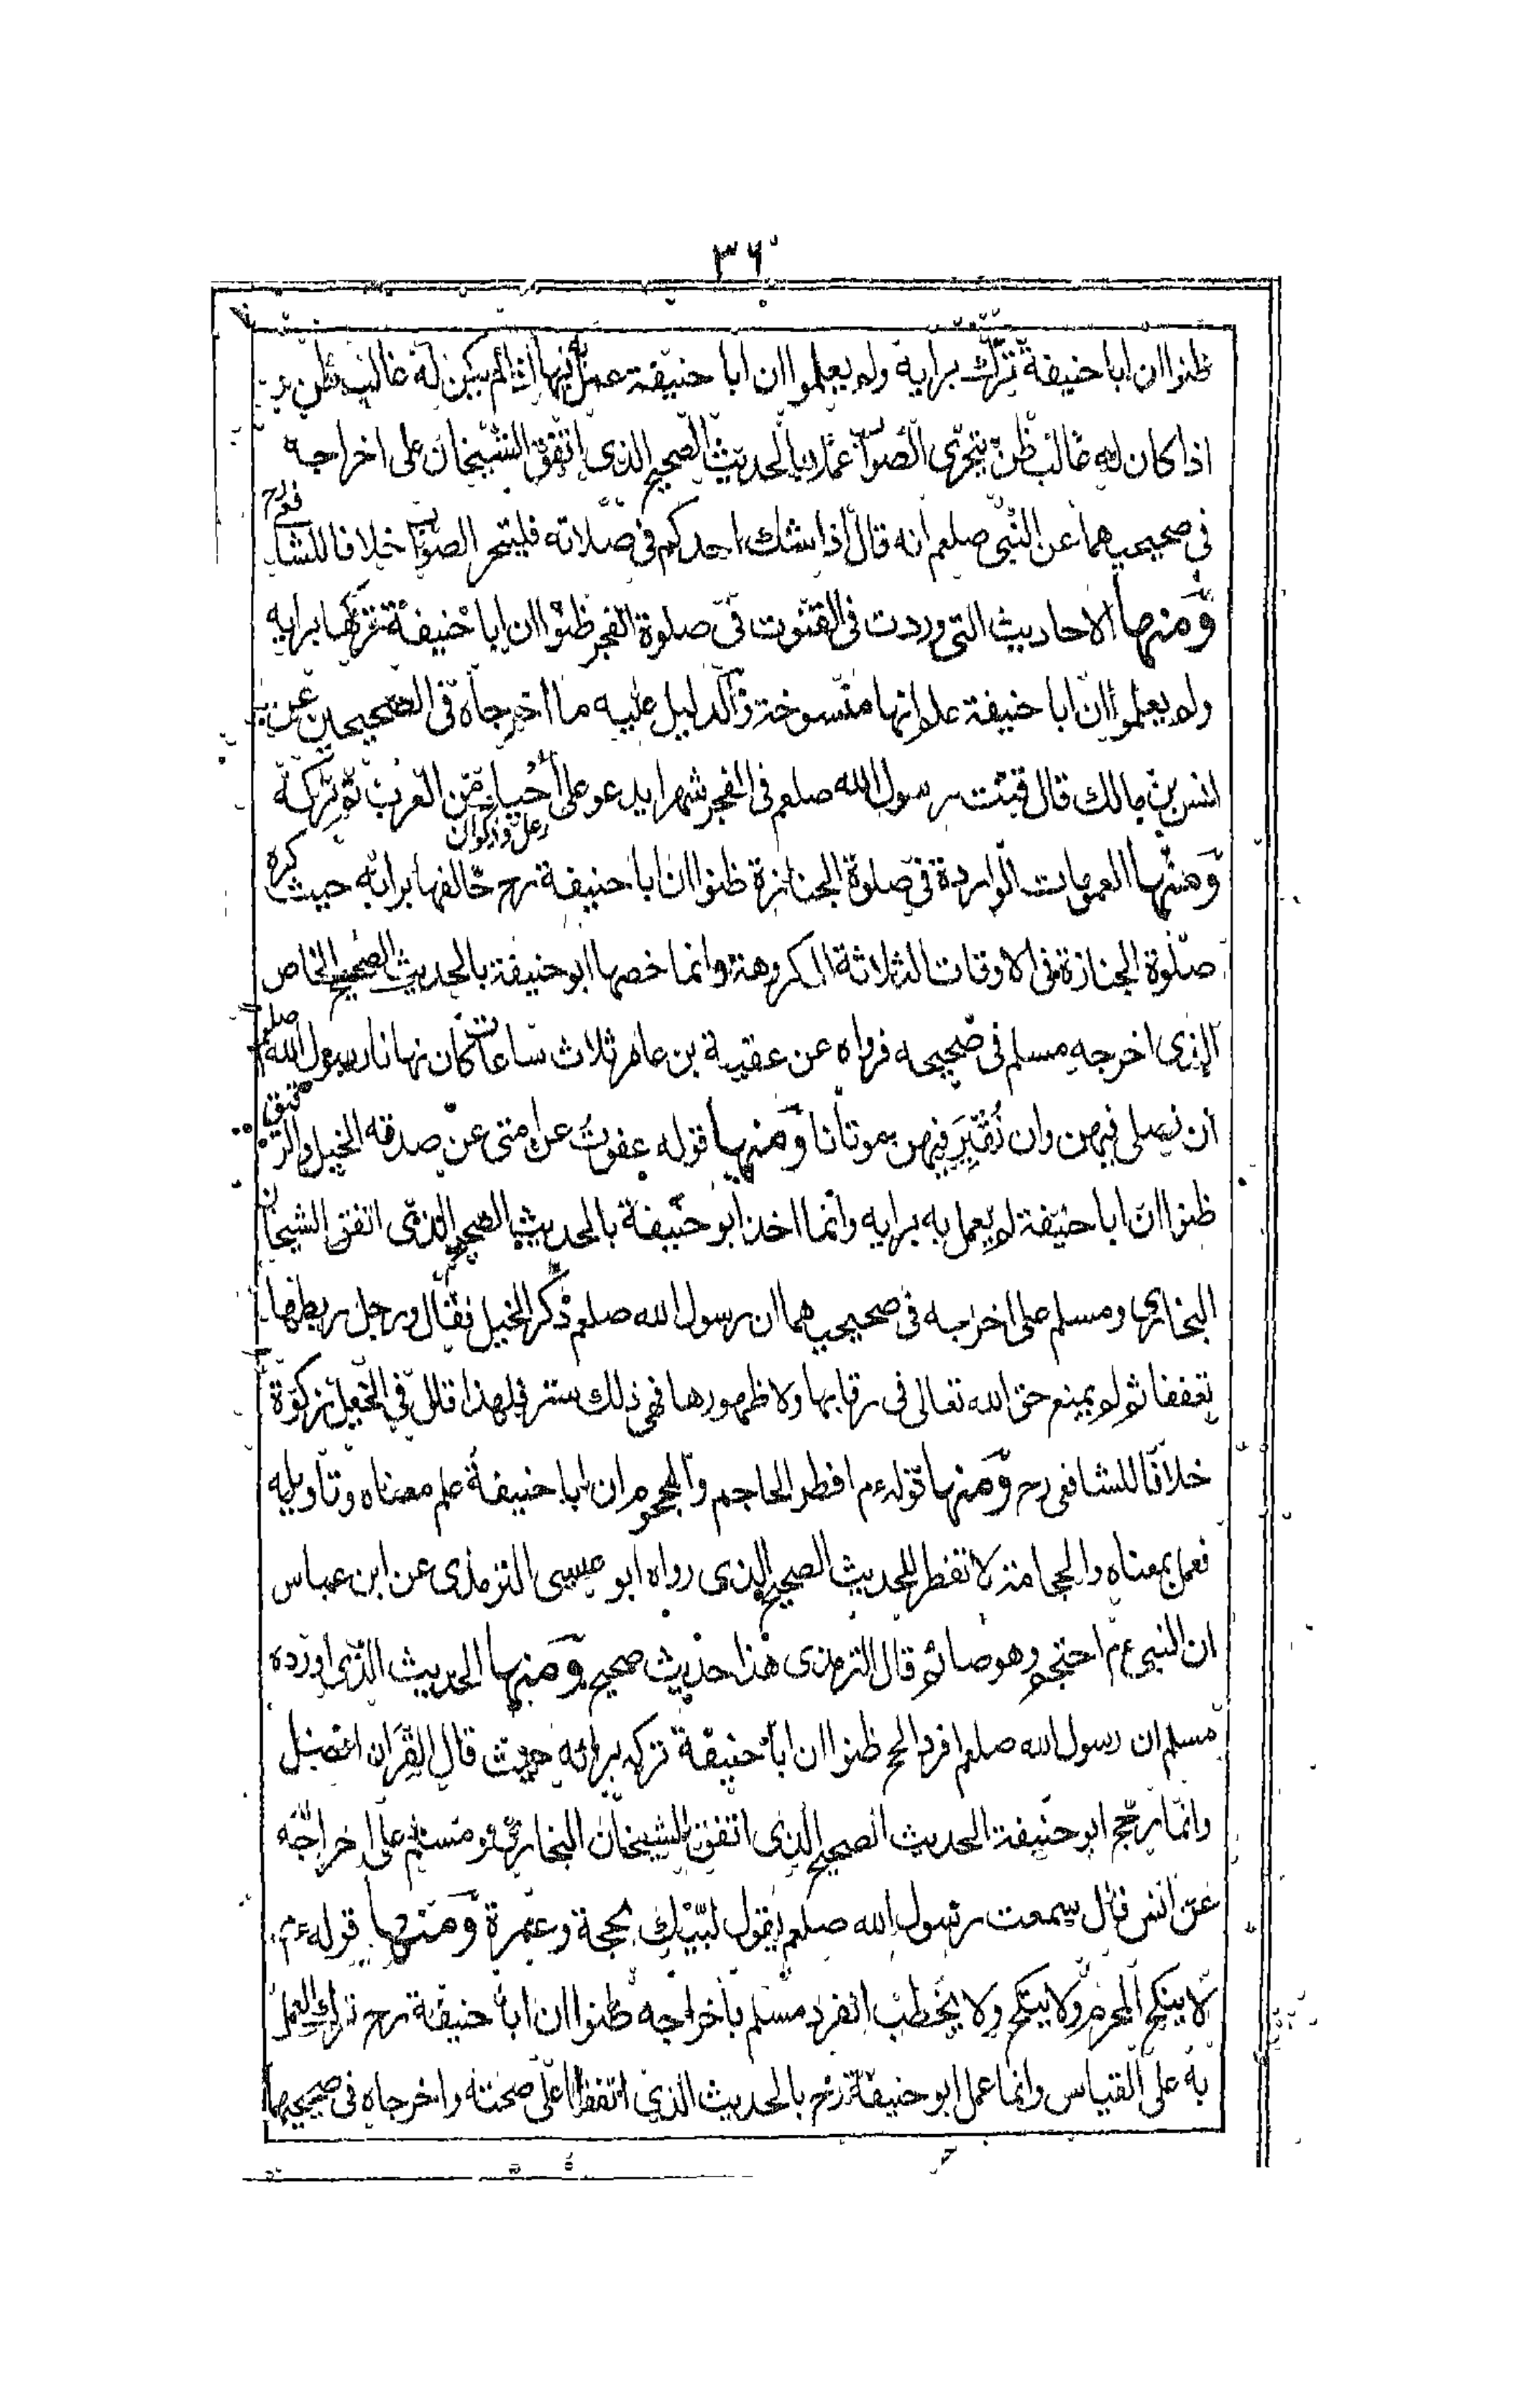 ٣٦
ظنوا ان ابا حنيفة تترك برايه ولم يعلموا ان ابا حنيفة عمل بها اذا لم يكن له غالب ظن
اذا كان له غالب ظن يتحرى الصواب عملا بالحديث الصحيح الذى اتفق الشيخان على اخراجه
فى صحيحيهما عن النبى صلعم انه قال اذا شك احدكم فى صلاته فليتحر الصواب خلافا للشافعى رح
ومنها الاحاديث التى وردت فى القنوت فى صلوة الفجر ظنوا ان ابا حنيفة تركها برايه
ولم يعلموا ان ابا حنيفة علم انها منسوخة والدليل عليه ما اخرجاه فى الصحيحين عن
انس بن مالك قال قنت رسول الله صلعم فى الفجر شهرا يدعو على أحياء من العرب ثم تركه
رعل وذكوان
ومنها العمومات الواردة فى صلوة الجنازة ظنوا ان ابا حنيفة رح خالفها برائه حيث كره
صلوة الجنازة فى الاوقات الثلاثة المكروهة وانما خصها ابو حنيفة بالحديث الصحيح الخاص
الذى اخرجه مسلم فى صحيحه فرواه عن عقبة بن عامر ثلاث ساعات كان نهانا رسول الله صلعم
ان نصلى فيهن وان نُقبِرَ فيهن موتانا ومنها قوله عفوت عن امتى عن صدقه الخيل والرقيق
ظنوا ان ابا حنيفة لم يعمل به برايه وانما اخذ ابو حنيفة بالحديث الصحيح الذى اتفق الشيخان
البخارى ومسلم على اخرجه فى صحيحيهما ان رسول الله صلعم ذكر الخيل فقال ورجل ربطها
تعففا ثم لم يمنع حق الله تعالى فى رقابها ولا ظهورها فهى ذلك ستر فلهذا قلل فى الخيل زكوة
خلافا للشافعى رح ومنها قوله ءم افطر الحاجم والمحجوم ان ابا حنيفة علم معناه وتاويله
فعمل بمعناه والحجامة لا تفطر للحديث الصحيح الذى رواه ابو عيسى الترمذى عن ابن عباس
ان النبى ءم احتجم وهو صائم قال الترمذى هذا حديث صحيح ومنها الحديث الذى اورده
مسلم ان رسول الله صلعم افرد الحج ظنوا ان ابا حنيفة تركه برائه حيث قال القران افضل
وانما رجح ابو حنيفة الحديث الصحيح الذى اتفق الشيخان البخارى ومسلم على اخراجه
عن انس قال سمعت رسول الله صلعم يقول لبيك بحجة وعمرة ومنها قوله ءم
لا ينكح المحرم ولا ينكح ولا يخطب انفرد مسلم باخراجه ظنوا ان ابا حنيفة رح ترك العمل
به على القياس وانما عمل ابو حنيفة رح بالحديث الذى اتفقا على صحته واخرجاه فى صحيحيهما